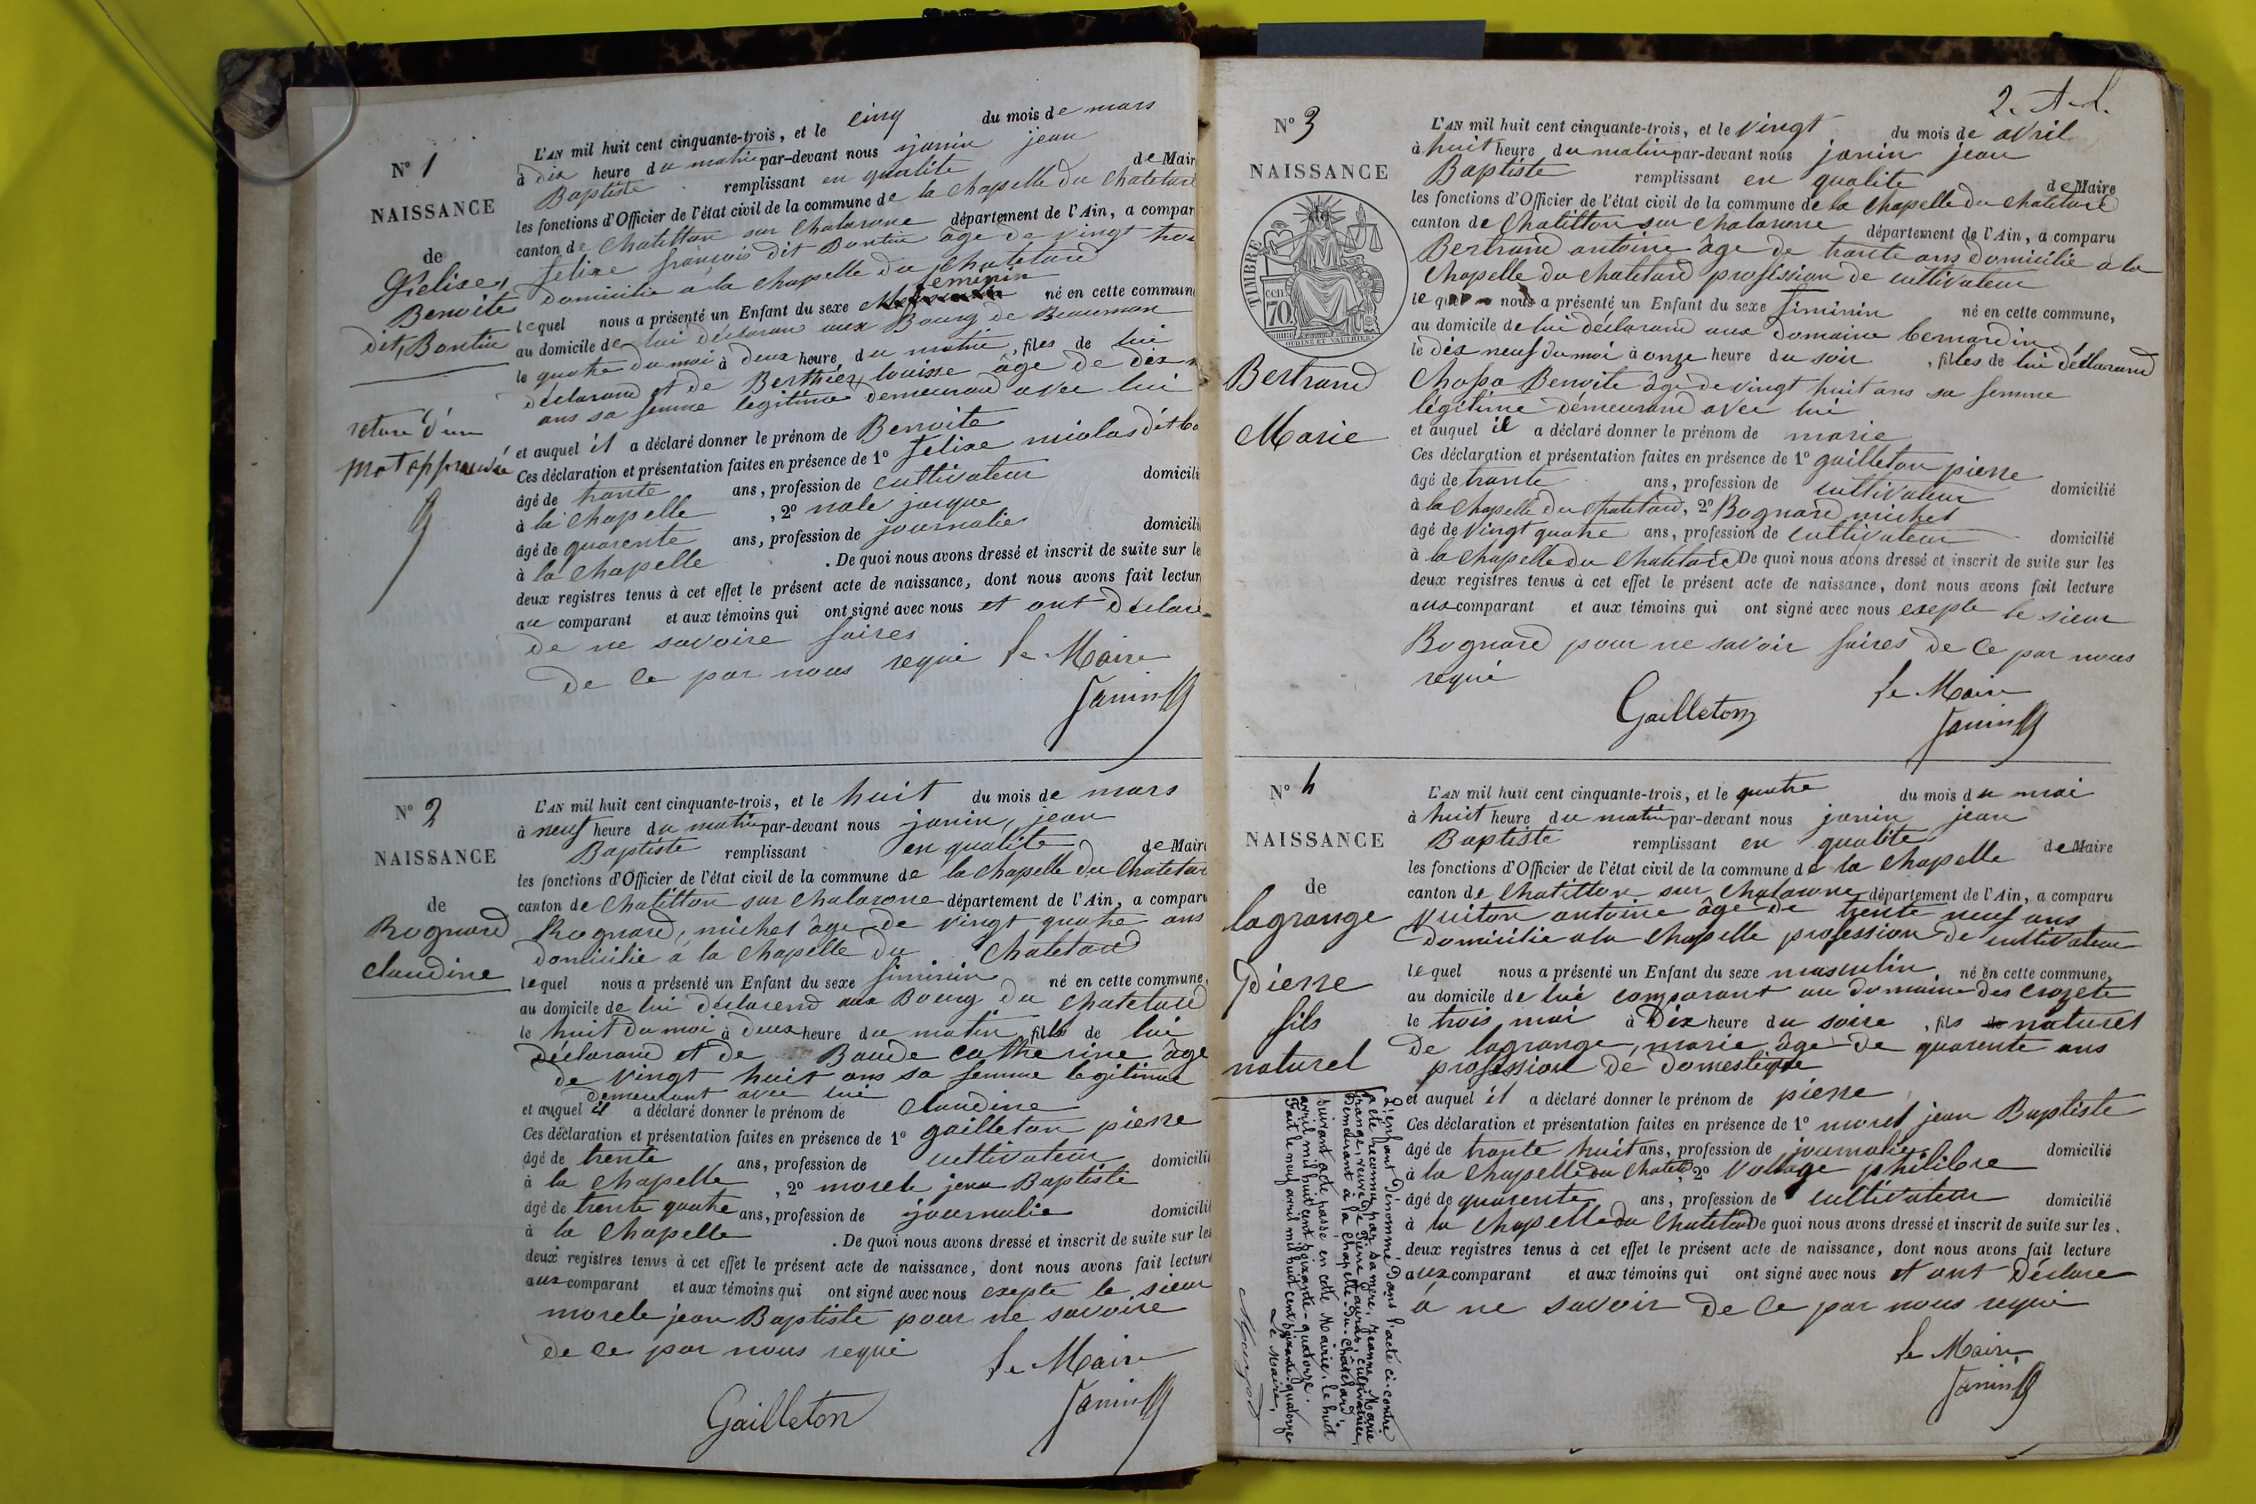 N° 1
NAISSANCE
de
félise,
Benoite
dit, Bontin
rature d'un
mot approuvé
L'AN mil huit cent cinquante-trois, et le cinq du mois de mars
à dix heure du matin par-devant nous janin jean
Baptiste remplissant en qualite de Mair
les fonctions d'Officier de l'état civil de la commune de la Chapelle du Chatelard
canton de Chatillon sur Chalarone département de l'Ain, a compar
félise françois dit Bontin âge de vingt troi
domicilie a la chapelle du Chatelard
feminin
lequel nous a présenté un Enfant du sexe né en cette commun
au domicile de lui déclarand aux Bourg de Beaumon
le quatre du moi à deux heure du matin, files de lui
déclarand et de Berthier louisse âge de dix n
ans sa femme legitime demeurand avec lui
et auquel il a déclaré donner le prénom de Benoite
Ces déclaration et présentation faites en présence de 1° félise nicolas dit bo
âgé de trante ans, profession de cultivateur domicili
à la chapelle, 2° nale jacque
âgé de quarente ans, profession de journalie domicili
à la Chapelle. De quoi nous avons dressé et inscrit de suite sur le
deux registres tenus à cet effet le présent acte de naissance, dont nous avons fait lectur
au comparant et aux témoins qui ont signé avec nous et ont déclare
de ne savoire faires
de ce par nous requi le Maire
Janin
N° 2
NAISSANCE
de
Rognard
claudine
L'AN mil huit cent cinquante-trois, et le huit du mois de mars
à neuf heure du matin par-devant nous janin, jean
Baptiste remplissant en qualite de Mair
les fonctions d'Officier de l'état civil de la commune de la Chapelle du Chatelar
canton de Chatillon sur Chalarone département de l'Ain, a comparu
Rognard, michel âge de vingt quatre ans
domicilie a la Chapelle du Chatelard
lequel nous a présenté un Enfant du sexe feminin né en cette commune,
au domicile de lui declarend aux Bourg du Chatelard
le huit du moi à deux heure du matin, fille de lui
déclarand et de Baude catherine âge
de vingt huit ans sa femme legitime
demeurant avec lui
et auquel il a déclaré donner le prénom de claudine
Ces déclaration et présentation faites en présence de 1° gailleton pierre
âgé de trente ans, profession de cultivateur domicilié
à la Chapelle, 2° morele jean Baptiste
âgé de trente quatre ans, profession de journalie domicili
à la Chapelle. De quoi nous avons dressé et inscrit de suite sur les
deux registres tenus à cet effet le présent acte de naissance, dont nous avons fait lecture
aux comparant et aux témoins qui ont signé avec nous exepte le sieur
morele jean Baptiste pour ne savoire
de ce par nous requi
le Maire
Gailleton Janin
2. A-L.
N° 3
NAISSANCE
TIMBRE
70
Bertrand
Marie
L'AN mil huit cent cinquante-trois, et le vingt du mois de avril
à huit heure du matin par-devant nous janin jean
Baptiste remplissant en qualite de Maire
les fonctions d'Officier de l'état civil de la commune de la Chapelle du Chatelard
canton de Chatillon sur Chalarone département de l'Ain, a comparu
Bertrand antoine âge de trante ans domicilie a la
Chapelle du Chatelard profession de cultivateur
lequel nous a présenté un Enfant du sexe feminin né en cette commune,
au domicile de lui déclarand aux domaine bernardin
le dix neuf du moi à onze heure du soir, filles de lui déclarand
Chapa Benoite âge de vingt huit ans sa femme
légitime démeurand avec lui
et auquel il a déclaré donner le prénom de marie
Ces déclaration et présentation faites en présence de 1° gailleton pierre
âgé de trante ans, profession de cultivateur domicilié
à la chapelle du Chatelard, 2° Rognard michel
âgé de vingt quatre ans, profession de cultivateur domicilié
à la Chapelle du Chatelard De quoi nous avons dressé et inscrit de suite sur les
deux registres tenus à cet effet le présent acte de naissance, dont nous avons fait lecture
aux comparant et aux témoins qui ont signé avec nous exepte le sieur
Rognard pour ne savoir faires de ce par nous
requi
le Maire
Gailleton Janin
N° 4
NAISSANCE
de
lagrange
Pierre
fils
naturel
L'AN mil huit cent cinquante-trois, et le quatre du mois du mai
à huit heure du matin par-devant nous janin jean
Baptiste remplissant en qualite de Maire
les fonctions d'Officier de l'état civil de la commune de la Chapelle
canton de Chatillon sur Chalarone département de l'Ain, a comparu
vuiton antoine âge de trente neuf ans
domicilie a la Chapelle profession de cultivateur
lequel nous a présenté un Enfant du sexe masculin né en cette commune,
au domicile de lui comparant au domaine des Crozete
le trois mai à Dix heure du soire, fils de naturel
De lagrange, marie âge de quarente ans
profession de domestique
et auquel il a déclaré donner le prénom de pierre
Ces déclaration et présentation faites en présence de 1° morel jean Baptiste
âgé de trante huit ans, profession de journalier domicilié
à la Chapelle du Chatel, 2° Vollage philibre
âgé de quarente ans, profession de cultivateur domicilié
à la Chapelle du Chatelard De quoi nous avons dressé et inscrit de suite sur les
deux registres tenus à cet effet le présent acte de naissance, dont nous avons fait lecture
aux comparant et aux témoins qui ont signé avec nous et ont Déclare
a ne savoir De ce par nous requi
le Maire
Janin
L'enfant dénommé dans l'acte ci-contre
a été reconnu par sa mère, Jeanne Marie
Lagrange, veuve de Pierre cultivateur,
demeurant à la Chapelle-du-Châtelard,
suivant acte passé en cette Mairie, le huit
avril mil huit cent soixante-quatorze.
Fait le neuf avril mil huit cent soixante-quatorze
Le Maire,